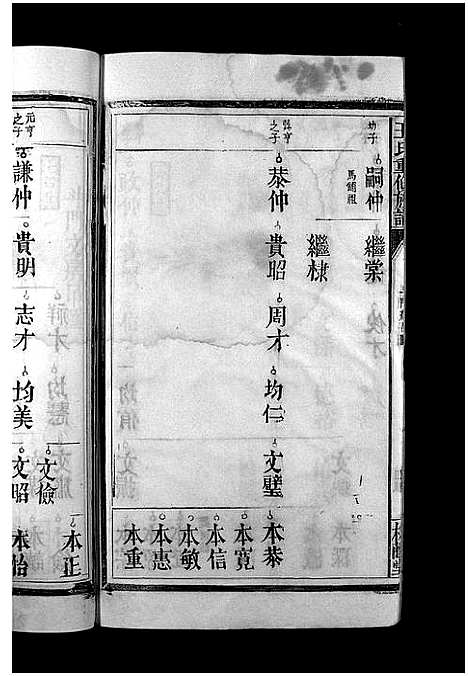 王氏重修族譜
幼子
嗣仲
馬鋪祖
繼棠
繼棣
之子
恭仲
貴昭
周才
均仁
文璧
本恭
本寬
本信
本敏
本惠
本重
元亨之子
謙仲
貴明
志才
均美
文儉
文昭
本正
本怡